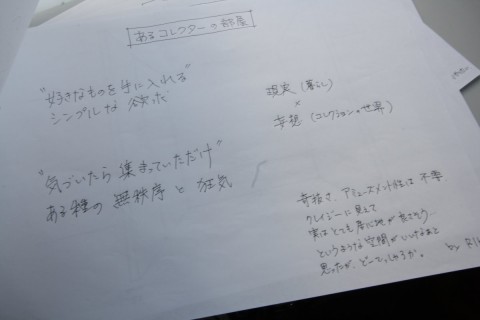 あるコレクターの部屋
"好きなものを手に入れる"
シンプルな欲求
現実(暮らし)
×
妄想(コレクションの世界)
"気づいたら集まっていただけ"
ある種の無秩序と狂気
奇抜さ、アミューズメント性は不要。
クレイジーに見えて
実はとても居心地が良さそう…
というような空間がいいなあと
思ったが、どーでっしゃろか。
by